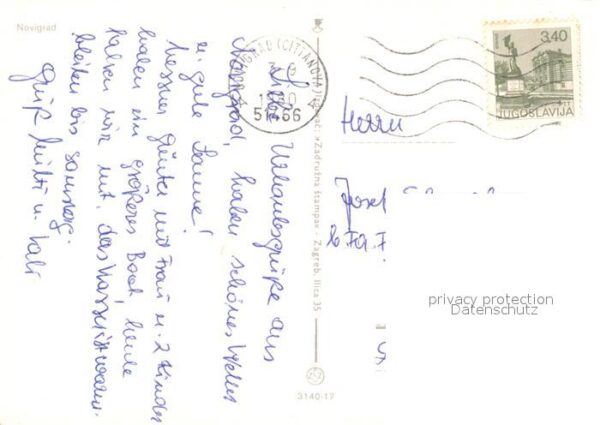 Novigrad
Liebe Urlaubsgrüße aus
Novigrad, haben schönes Wetter
u. gute Laune!
Messner Günter mit Frau u. 2 Kinder
haben ein größeres Boot, heute
fahren wir mit, das Wasser ist warm.
bleiben bis Samstag.
Gruß Mutti u.
NOVIGRAD (CITTANOVA)
51466
Izdavač: »Zadružna štampa« - Zagreb, Ilica 35
3140-17
3,40
JUGOSLAVIJA
Herrn
Josef
privacy protection
Datenschutz